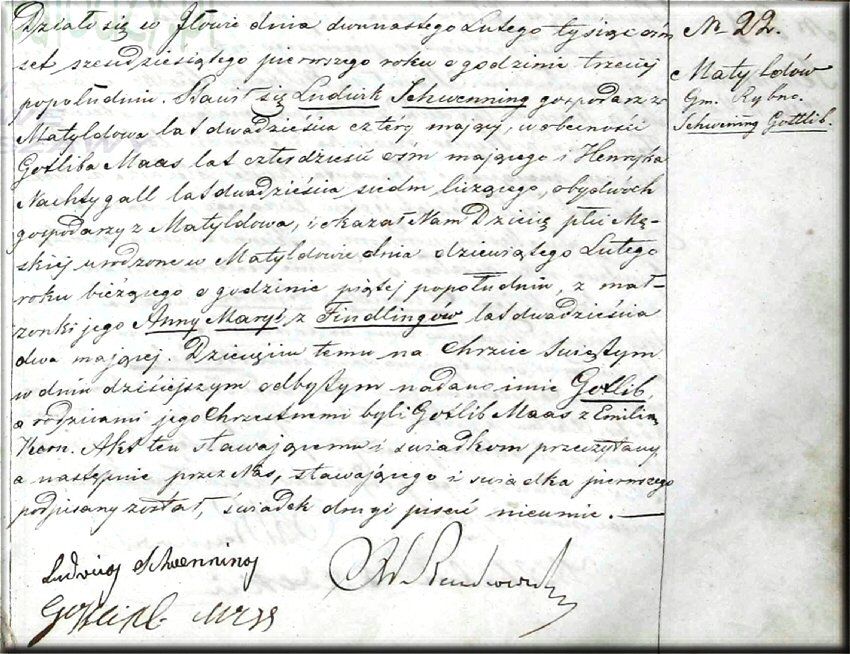 Działo się w Iłowie dnia dwunastego Lutego tysiąc ośm
set sześdziesiątego pierwszego roku o godzinie trzeciej
popołudniu. Stawił się Ludwik Schwenning gospodarz z
Matyldowa lat dwadzieścia cztery mający, w obecności
Gotliba Maas lat czterdzieści ośm mającego i Henryka
Nachtygall lat dwadzieścia siedm liczącego, obydwóch
gospodarzy z Matyldowa, i okazał Nam Dziecię płci Mę-
skiej urodzone w Matyldowie dnia dziewiątego Lutego
roku bieżącego o godzinie piątej popołudniu, z mał-
żonki jego Anny Maryi z Findlingów lat dwadzieścia
dwa mającej. Dziecięciu temu na Chrzcie Świętym
w dniu dzisiejszym odbytym nadano imie Gotlib
a rodzicami jego Chrzestnemi byli Gotlib Maas z Emilią
Korn. Akt ten stawającemu i świadkom przeczytany
a następnie przez Nas, stawającego i świadka pierwszego
podpisany został, świadek drugi pisać nieumie. —
Ludwig Schwenning
Gottlieb Mass
№ 22.
Matyldów
Gm. Rybno.
Schwening Gottlib.